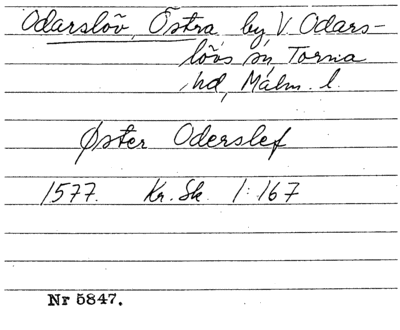 Odarslöv, Östra by, V. Odars-
lövs sn, Torna
hd, Malm. l.
Øster Oderslef
1577. Kr. Sk. 1:167
Nr 5847.